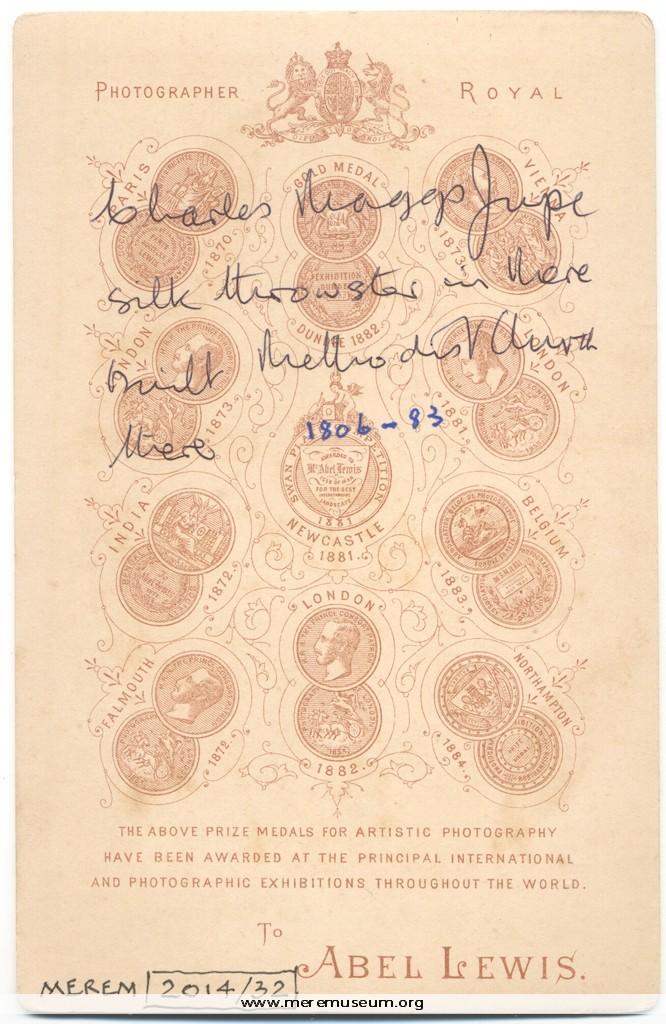 PHOTOGRAPHER ROYAL
PARIS 1870.
GOLD MEDAL
EXHIBITION
DUNDEE 1882.
VIENNA 1873.
Charles Maggs Jupe
silk throwster in Mere
built Methodist Church
there
1806-83
LONDON 1873.
LONDON 1881.
SWAN COMPETITION
AWARDED TO
Mr Abel Lewis
ISLE OF MAN
FOR THE BEST
LANDSCAPE
1881
NEWCASTLE
1881.
INDIA 1872.
BELGIUM 1883.
LONDON
1882.
FALMOUTH 1872.
NORTHAMPTON 1884.
THE ABOVE PRIZE MEDALS FOR ARTISTIC PHOTOGRAPHY
HAVE BEEN AWARDED AT THE PRINCIPAL INTERNATIONAL
AND PHOTOGRAPHIC EXHIBITIONS THROUGHOUT THE WORLD.
To
ABEL LEWIS.
MEREM 2014/32
www.meremuseum.org